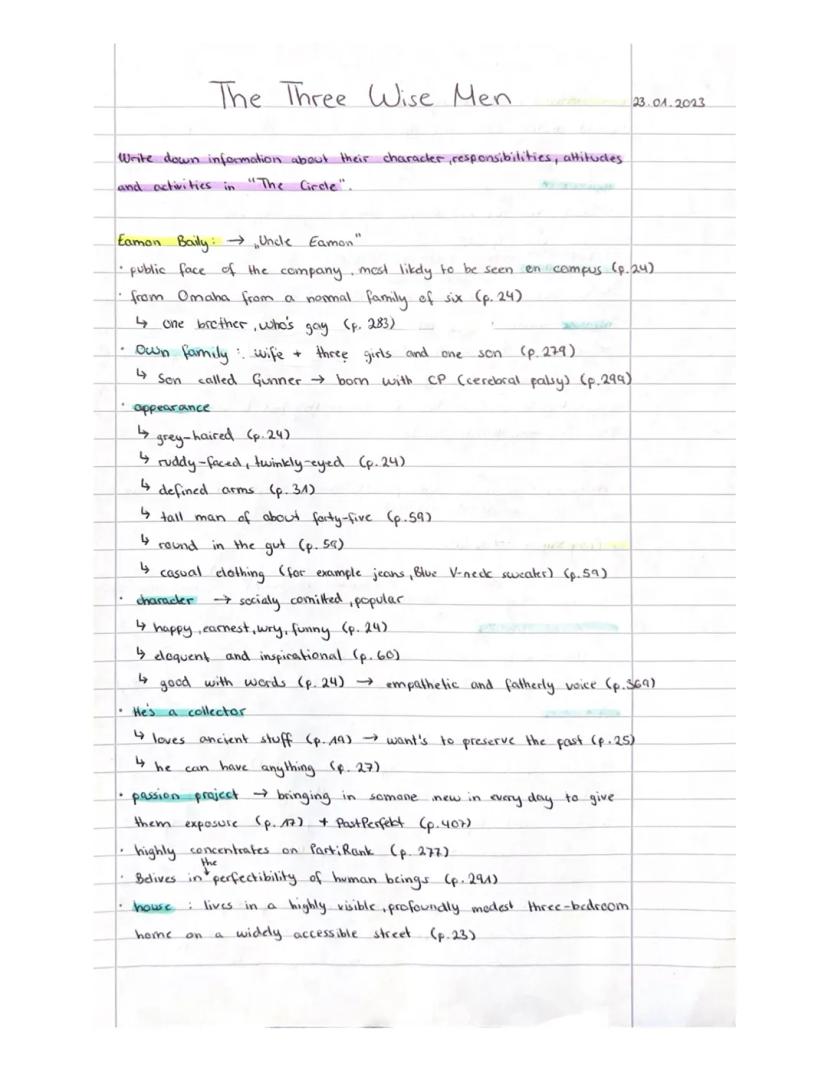 The Three Wise Men
23.01.2023
Write down information about their character, responsibilities, attitudes
and activities in "The Circle".
Eamon Baily: → „Uncle Eamon"
• public face of the company, most likdy to be seen on campus (p.24)
• from Omaha from a normal family of six (p. 24)
↳ one brother, who's gay (p. 283)
• Own family: wife + three girls and one son (p. 279)
↳ Son called Gunner → born with CP (cerebral palsy) (p.299)
• appearance
↳ grey-haired (p.24)
↳ ruddy-faced, twinkly-eyed (p.24)
↳ defined arms (p.31)
↳ tall man of about forty-five (p.59)
↳ round in the gut (p.59)
↳ casual clothing (for example jeans, Blue V-neck sweater) (p.59)
• character → socialy comitted, popular
↳ happy, earnest, wry, funny (p. 24)
↳ eloquent and inspirational (p. 60)
↳ good with words (p. 24) → empathetic and fatherly voice (p.369)
• He's a collector
↳ loves ancient stuff (p. 19) → want's to preserve the past (p.25)
↳ he can have anything (p. 27)
• passion project → bringing in somone new in every day to give
them exposure (p. 17) + PastPerfekt (p. 407)
• highly concentrates on PartiRank (p. 277)
• Belives in the perfectibility of human beings (p. 291)
• house: lives in a highly visible, profoundly modest three-bedroom
home on a widely accessible street (p.23)